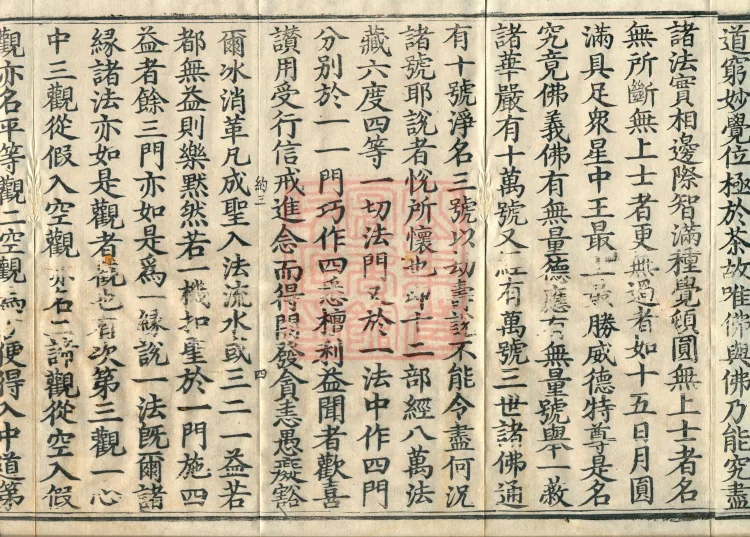 道窮妙覺位極於荼故唯佛與佛乃能究盡
諸法實相邊際智滿種覺頓圓無上士者名
無所斷無上士者更無過者如十五日月圓
滿具足衆星中王最上最勝威德特尊是名
究竟佛義佛有無量德應有無量號舉一蔽
諸華嚴有十萬號又云有萬號三世諸佛通
有十號淨名三號以劫壽說不能令盡何況
諸號耶說者悅所懷也即十二部經八萬法
藏六度四等一切法門又於一法中作四門
分別於一一門巧作四悉檀利益聞者歡喜
讃用受行信戒進念而得開發貪恚愚癡豁
約三 四
爾冰消革凡成聖入法流水或三二一益若
都無益則樂黙然若一機扣聖於一門施四
益者餘三門亦如是爲一緣說一法旣爾諸
緣諸法亦如是觀者觀也有次第三觀一心
中三觀從假入空觀亦名二諦觀從空入假
觀亦名平等觀二空觀爲方便得入中道第